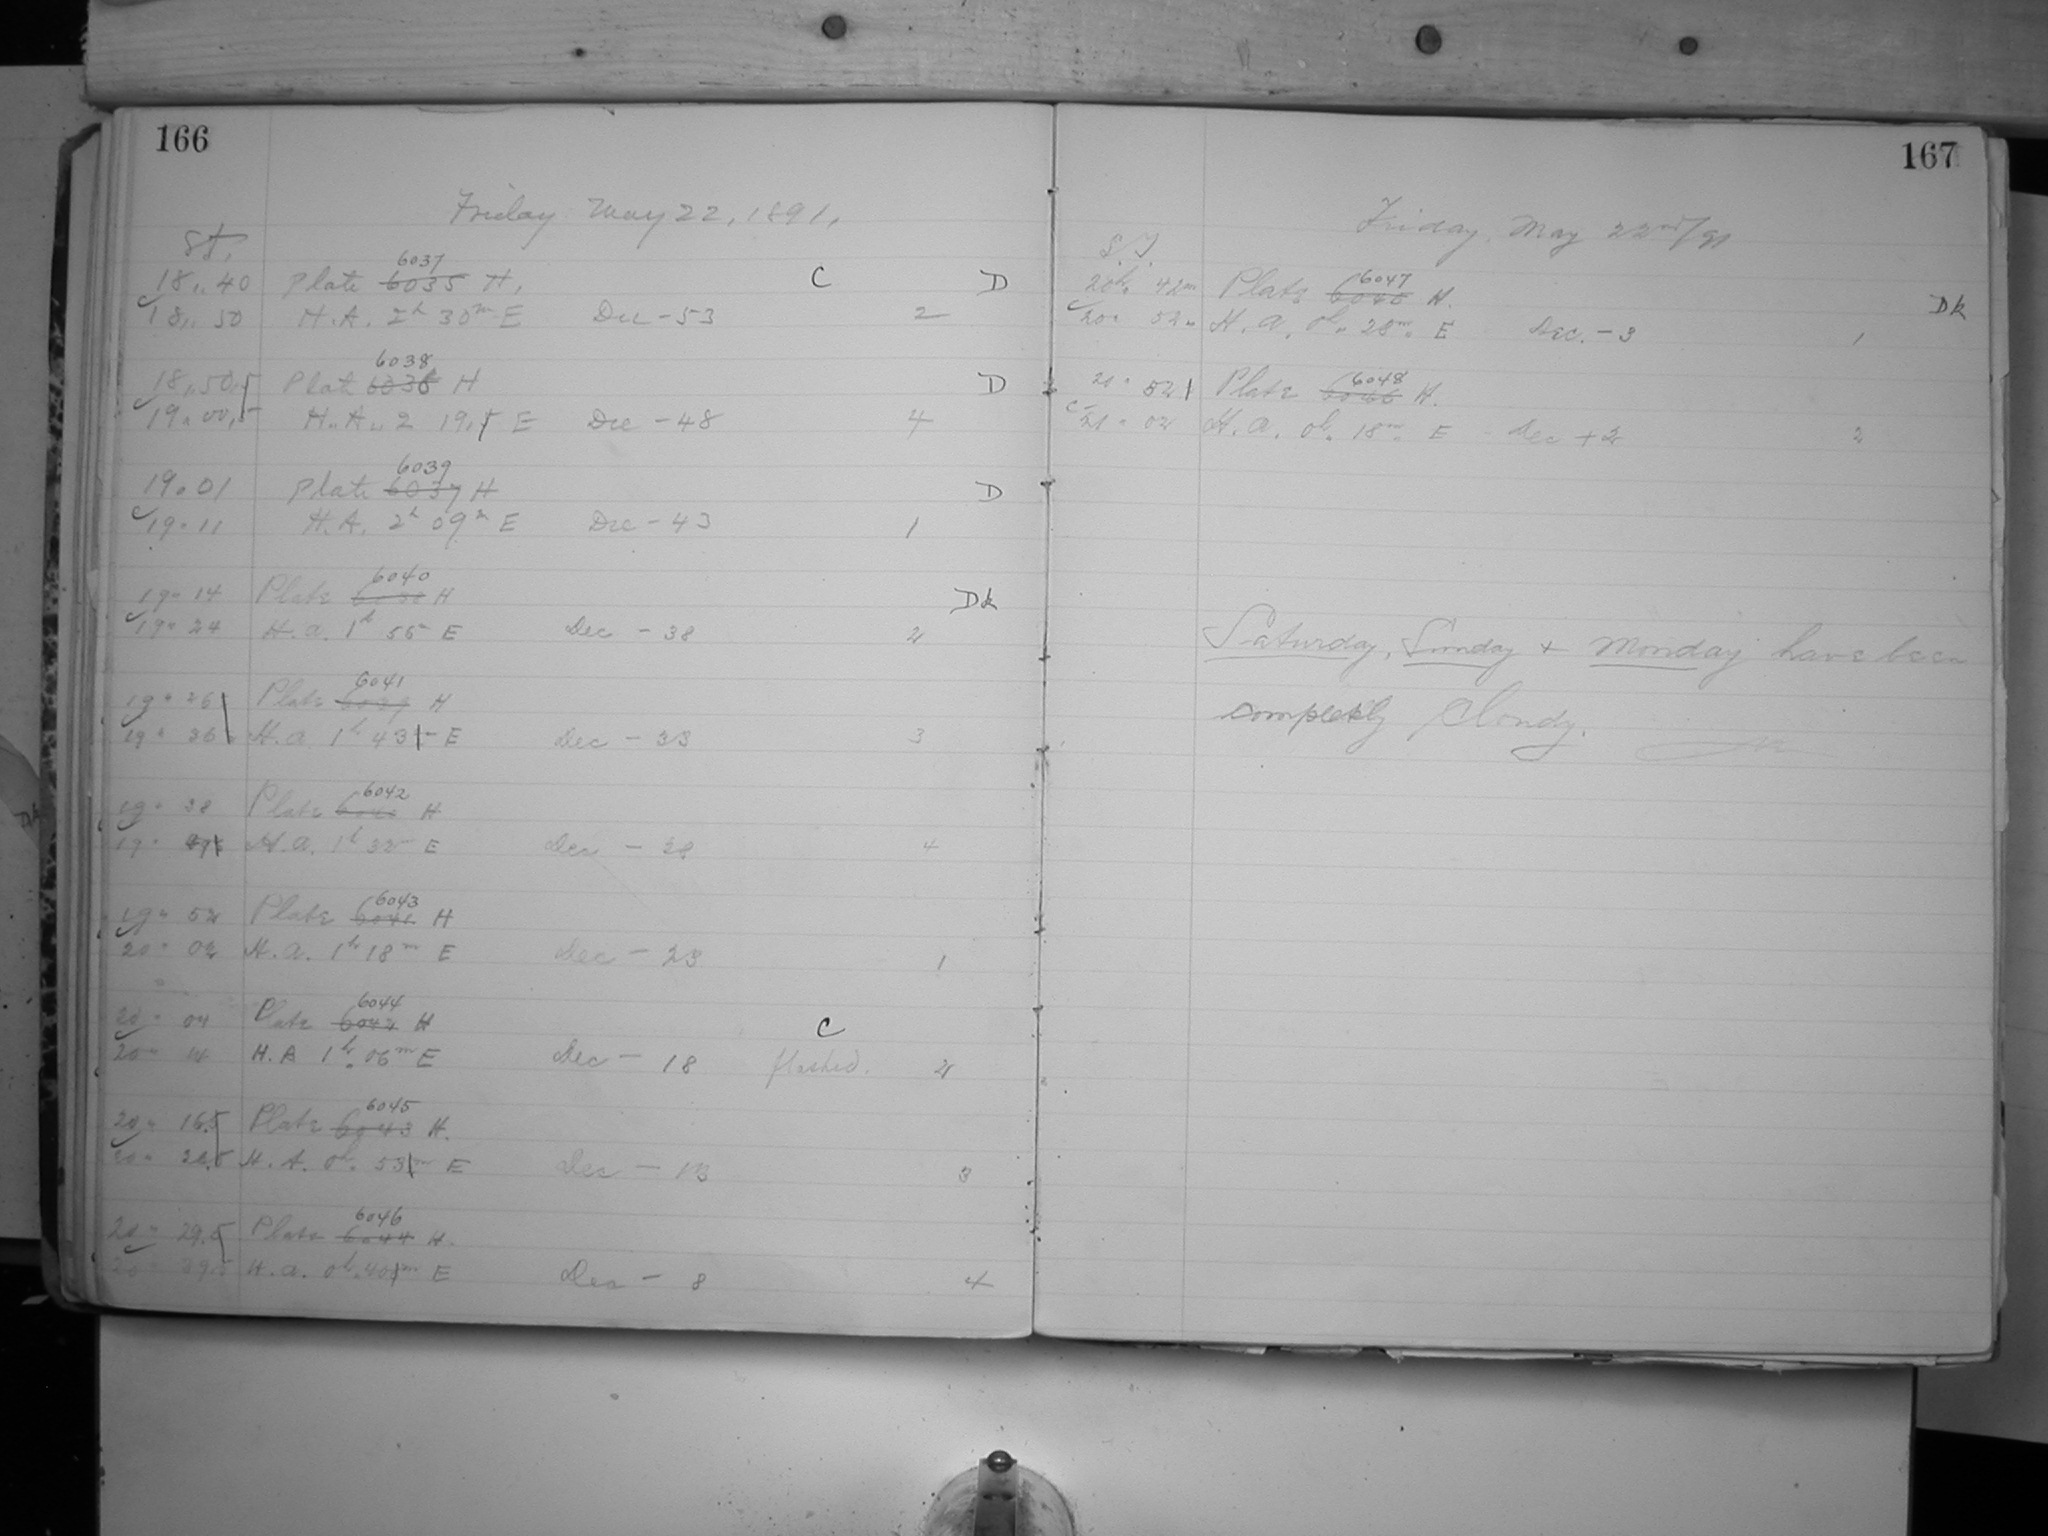 166
Friday May 22, 1891.
S.T.
6037 C D
18 .. 40 Plate 6035 H.
18 .. 50 H.A. 2h 30m E Dec - 53 2
6038
18 .. 50.5 Plate 6036 H D
19 .. 00.5 H.A. 2 19.5 E Dec - 48 4
6039
19 .. 01 Plate 6037 H D
19 .. 11 H.A. 2h 09m E Dec - 43 1
6040
19 .. 14 Plate 6038 H Dk
19 .. 24 H.a. 1h 56m E Dec - 38 2
6041
19 .. 26 Plate 6039 H
19 .. 36 H.a 1h 43 E Dec - 33 3
6042
19 .. 38 Plate 6040 H
19 .. H.a. 1h 32m E Dec - 28 4
6043
19 .. 52 Plate 6041 H
20 .. 02 H.a. 1h 18m E Dec - 23 1
6044 C
20 .. 04 Plate 6042 H
20 .. 14 H.A 1h. 06m E Dec - 18 flashed. 2
6045
20 .. 16.5 Plate 6043 H.
20 .. 26.5 H.A. 0h. 53m E Dec - 13 3
6046
20 .. 29.5 Plate 6044 H.
20 .. 39.5 H.a. 0h. 40m E Dec - 8 4
167
Friday, May 22nd/91
S.T.
6047
20h. 42m Plate 6045 H. Dk
20 .. 52 .. H.a. 0h. 28m. E Dec. - 3 1
6048
20 .. 52 Plate 6046 H.
21 .. 02 H.a. 0h. 18m. E Dec + 2 2
Saturday, Sunday + Monday have been
completely cloudy.
Dk